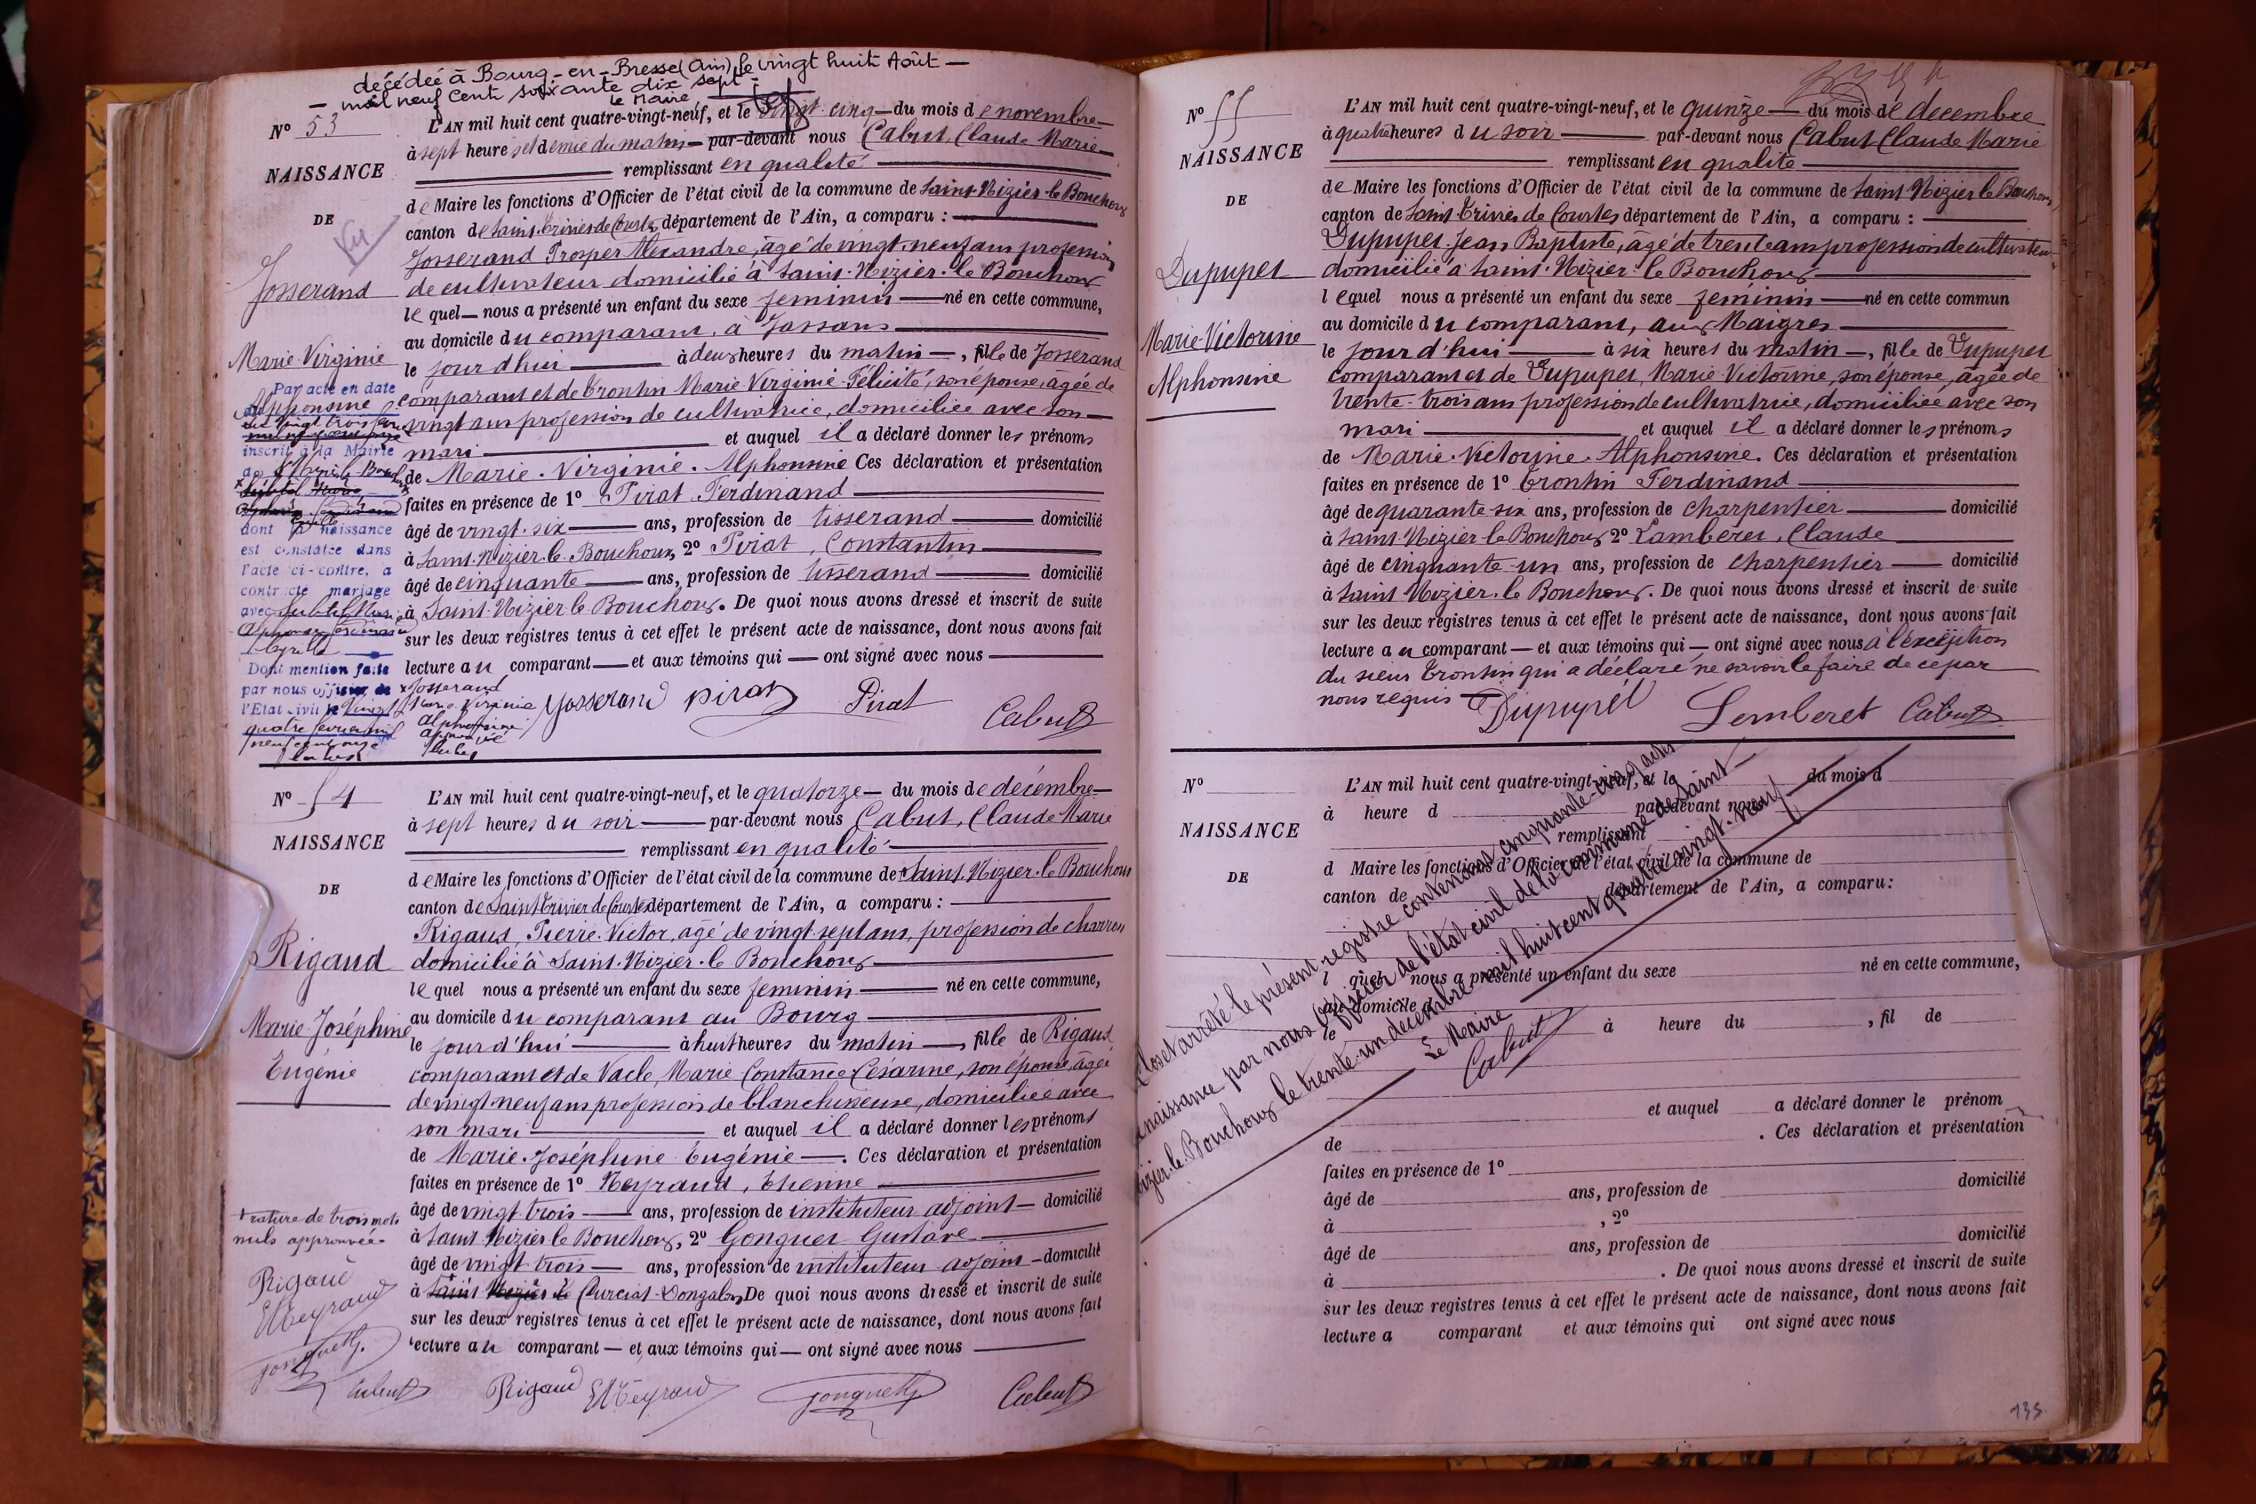 décédée à Bourg-en-Bresse (Ain) le vingt huit Août —
— mil neuf cent soixante dix sept —
le Maire,
N° 53
NAISSANCE
DE
Vu
Josserand
Marie Virginie
Alphonsine
L'AN mil huit cent quatre-vingt-neuf, et le vingt cinq — du mois de novembre —
à sept heures et demie du matin — par-devant nous Cabut, Claude Marie —
remplissant en qualité
de Maire les fonctions d'Officier de l'état civil de la commune de Saint-Nizier-le-Bouchoux
canton de Saint-Trivier de Courtes département de l'Ain, a comparu :
Josserand Prosper Alexandre, âgé de vingt-neuf ans profession
de cultivateur domicilié à Saint-Nizier-le-Bouchoux
lequel — nous a présenté un enfant du sexe féminin — né en cette commune,
au domicile du comparant, à Jassans
le jour d'hui — à deux heures du matin —, fille de Josserand
comparant et de Trontin Marie Virginie Félicité, son épouse, âgée de
vingt ans profession de cultivatrice, domiciliée avec son —
mari — et auquel il a déclaré donner les prénoms
de Marie. Virginie. Alphonsine Ces déclaration et présentation
faites en présence de 1° Pirat Ferdinand
âgé de vingt-six — ans, profession de tisserand — domicilié
à Saint-Nizier-le-Bouchoux, 2° Pirat, Constantin
âgé de cinquante — ans, profession de tisserand — domicilié
à Saint-Nizier le Bouchoux. De quoi nous avons dressé et inscrit de suite
sur les deux registres tenus à cet effet le présent acte de naissance, dont nous avons fait
lecture au comparant — et aux témoins qui — ont signé avec nous
Josserand Pirat Pirat Cabut
Par acte en date
du vingt trois
inscrit à la Mairie
de St Nizier le Bouchoux
dont la naissance
est constatée dans
l'acte ci-contre, a
contracté mariage
avec
Dont mention faite
par nous officier de
l'Etat civil le vingt
quatre février mil
neuf cent onze
x Josserand
Marie Virginie
Alphonsine
approuvé
N° 54
NAISSANCE
DE
Rigaud
Marie Joséphine
Eugénie
L'AN mil huit cent quatre-vingt-neuf, et le quatorze — du mois de décembre —
à sept heures du soir — par-devant nous Cabut, Claude Marie
remplissant en qualité
de Maire les fonctions d'Officier de l'état civil de la commune de Saint-Nizier-le-Bouchoux
canton de Saint Trivier de Courtes département de l'Ain, a comparu :
Rigaud, Pierre Victor, âgé de vingt sept ans, profession de charron
domicilié à Saint-Nizier-le Bouchoux
lequel nous a présenté un enfant du sexe féminin — né en cette commune,
au domicile du comparant au Bourg
le jour d'hui — à huit heures du matin —, fille de Rigaud
comparant et de Vacle, Marie Constance Césarine, son épouse, âgée
de vingt-neuf ans profession de blanchisseuse, domiciliée avec
son mari — et auquel il a déclaré donner les prénoms
de Marie. Joséphine Eugénie —. Ces déclaration et présentation
faites en présence de 1° Neyraud, Etienne
âgé de vingt trois — ans, profession de instituteur adjoint — domicilié
à Saint Nizier le Bouchoux, 2° Gonguet Gustave
âgé de vingt trois — ans, profession de instituteur adjoint — domicilié
à Saint Nizier le Curciat-Dongalon De quoi nous avons dressé et inscrit de suite
sur les deux registres tenus à cet effet le présent acte de naissance, dont nous avons fait
lecture au comparant — et aux témoins qui — ont signé avec nous
+ rature de trois mots
nuls approuvée.
Rigaud
E Neyraud
Gonguet G.
Cabut
Rigaud E Neyraud Gonguet G Cabut
N° 55
NAISSANCE
DE
Dupupet
Marie-Victorine
Alphonsine
L'AN mil huit cent quatre-vingt-neuf, et le quinze — du mois de décembre
à quatre heures du soir — par-devant nous Cabut Claude Marie
remplissant en qualité
de Maire les fonctions d'Officier de l'état civil de la commune de Saint-Nizier le Bouchoux
canton de Saint-Trivier de Courtes département de l'Ain, a comparu :
Dupupet Jean Baptiste, âgé de trente ans profession de cultivateur
domicilié à Saint-Nizier-le Bouchoux
lequel nous a présenté un enfant du sexe féminin — né en cette commun
au domicile du comparant, aux Maigres
le jour d'hui — à six heures du matin —, fille de Dupupet
comparant et de Dupupet, Marie Victorine, son épouse, âgée de
trente-trois ans profession de cultivatrice, domiciliée avec son
mari — et auquel il a déclaré donner les prénoms
de Marie. Victorine. Alphonsine. Ces déclaration et présentation
faites en présence de 1° Trontin Ferdinand
âgé de quarante-six ans, profession de charpentier — domicilié
à Saint-Nizier le Bouchoux 2° Lamberet, Claude
âgé de cinquante-un ans, profession de charpentier — domicilié
à Saint Nizier-le Bouchoux. De quoi nous avons dressé et inscrit de suite
sur les deux registres tenus à cet effet le présent acte de naissance, dont nous avons fait
lecture au comparant — et aux témoins qui — ont signé avec nous à l'exception
du sieur Trontin qui a déclaré ne savoir le faire de ce par
nous requis Dupupet Lemberet Cabut
N°
NAISSANCE
DE
L'AN mil huit cent quatre-vingt-neuf, et le du mois d
à heure d par-devant nous
remplissant
d Maire les fonctions d'Officier de l'état civil de la commune de
canton de département de l'Ain, a comparu:
l quel nous a présenté un enfant du sexe né en cette commune,
au domicile d
le à heure du , fil de
et auquel a déclaré donner le prénom
de . Ces déclaration et présentation
faites en présence de 1°
âgé de ans, profession de domicilié
à , 2°
âgé de ans, profession de domicilié
à . De quoi nous avons dressé et inscrit de suite
sur les deux registres tenus à cet effet le présent acte de naissance, dont nous avons fait
lecture a comparant et aux témoins qui ont signé avec nous
Clos et arrêté le présent registre contenant cinquante-cinq actes
naissance par nous Officier de l'état civil de la commune de Saint-
Nizier-le-Bouchoux le trente-un décembre mil huit cent quatre-vingt-neuf
Le Maire
Cabut
135